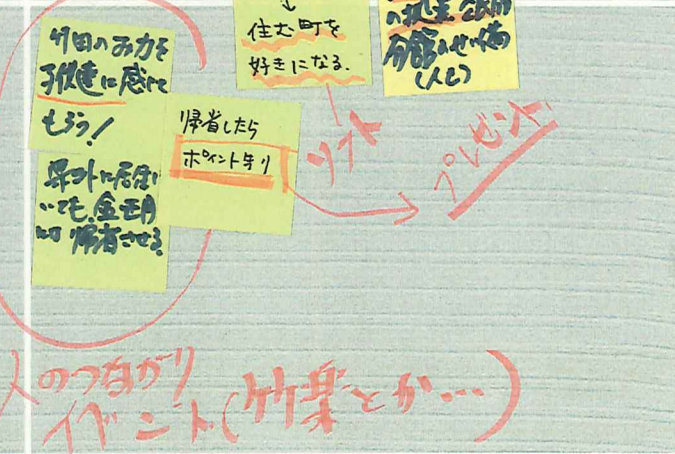 竹田のみ力を
子供達に感じて
もらう!
県外に居住して
いても、盆正月
には帰省させる。
帰省したら
ポイント有り
↓
住む町を
好きになる。
の拠点 公民館
分館のせい備
(人も)
ソフト
プレゼント
人のつながり
イベント(竹楽とか…)